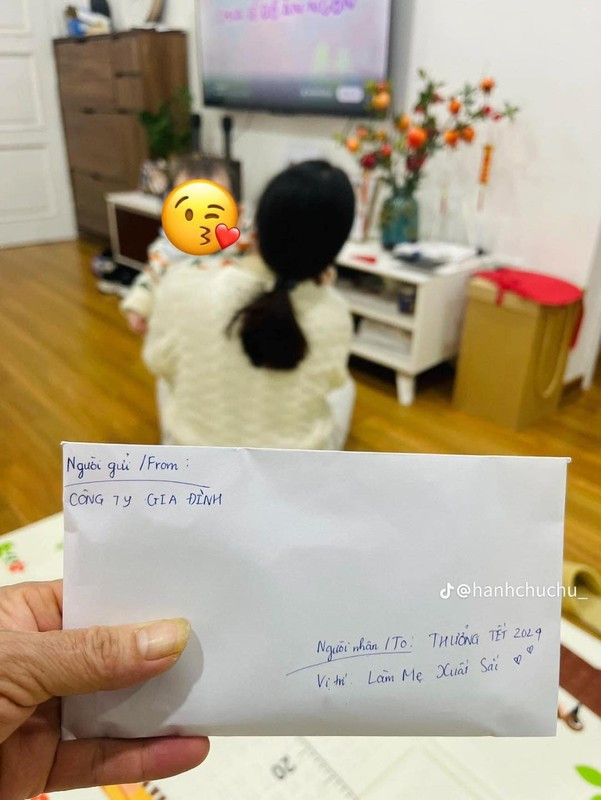 Người gửi /From :
CÔNG TY GIA ĐÌNH
@hanhchuchu_
Người nhân /To: THƯỞNG TẾT 2024
Vị trí: Làm Mẹ Xuất Sắc
20